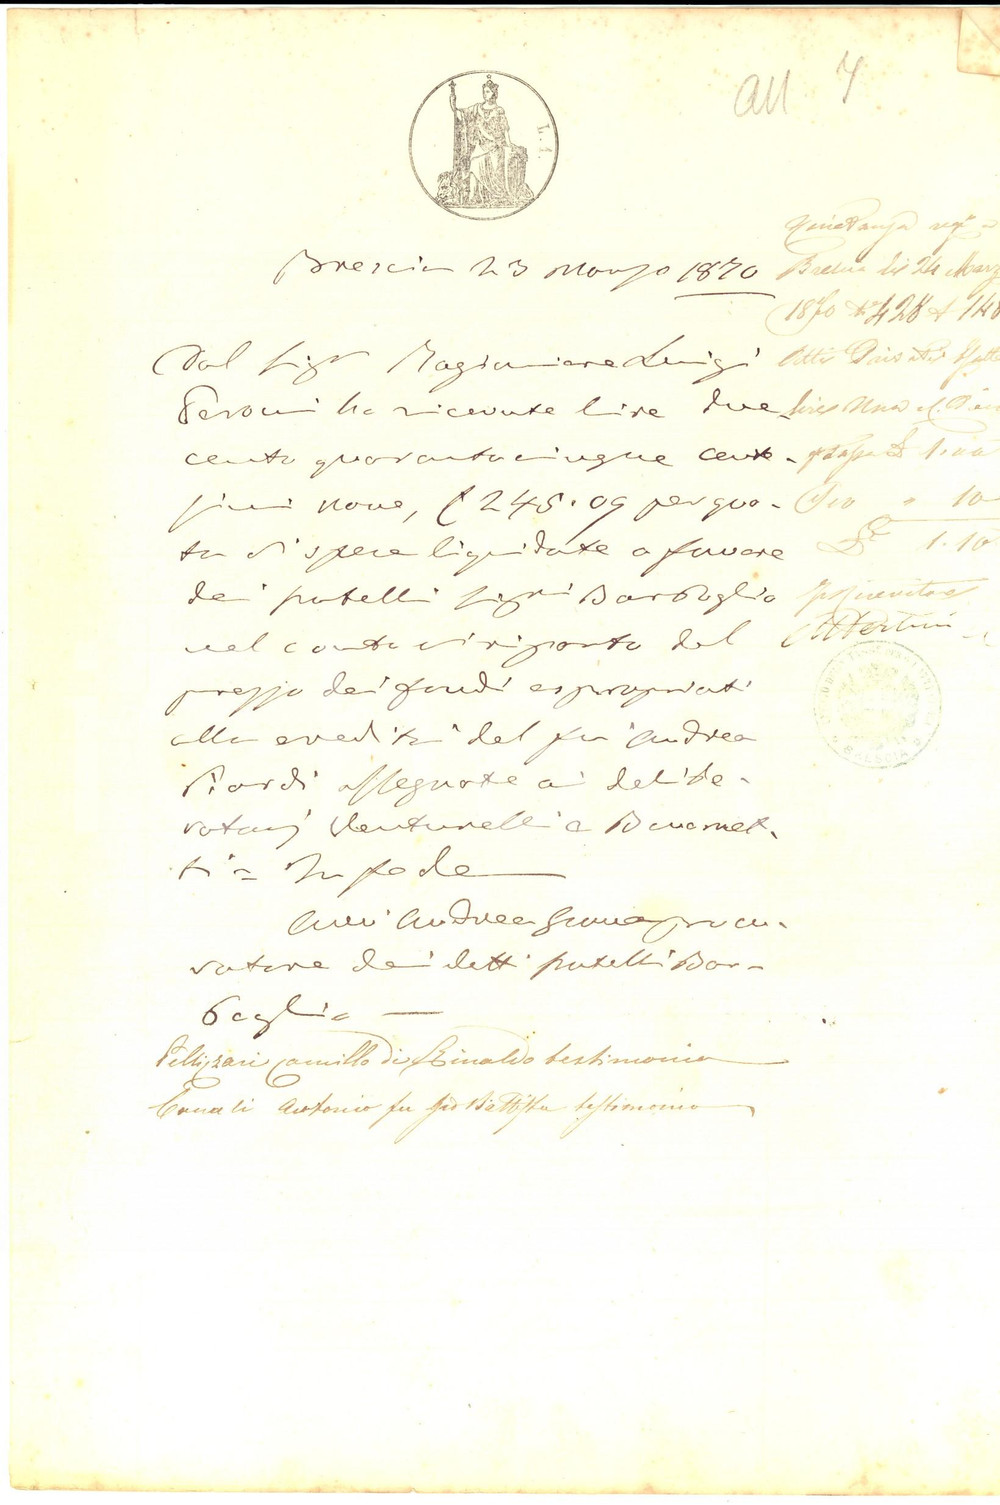 All 7
L. 1.
Brescia 23 Marzo 1870
Dal Sigr Ragioniere Luigi
Peroni ho ricevute lire due
cento quarantacinque cente-
simi nove, £ 245.09 per quo-
ta di spese liquidate a favore
dei fratelli Sigri Barboglio
nel conto di riparto del
prezzo dei fondi espropriati
alla eredità del fu Andrea
Picardi assegnate ai delibe-
ratarj Venturelli e Bonomet-
ti = In fede
Avv Andrea procu-
ratore dei detti fratelli Bar-
boglio
Pellizzari Camillo di Rinaldo testimonio
Canati Antonio fu Gio Battista testimonio
Brescia li 24 Marz
1870 N 428 148
Atti Privati
lire Una
1.00
10
1.10
Il Ricevitore
BRESCIA